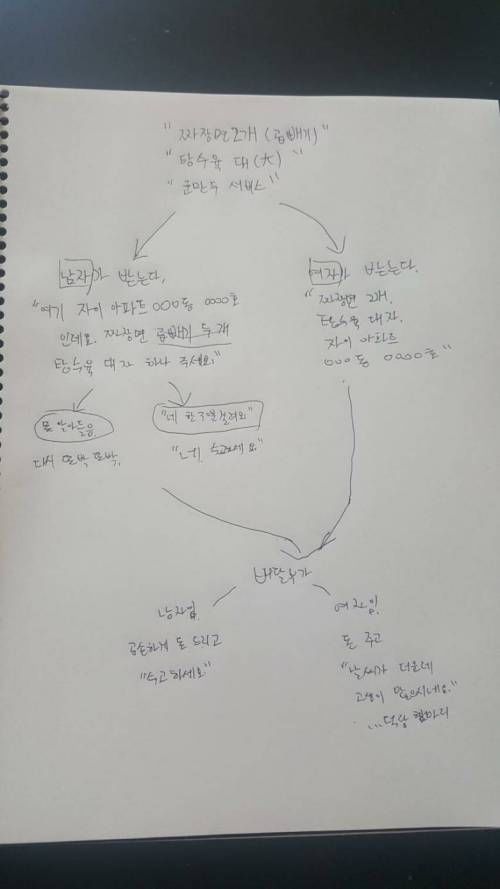 "짜장면 2개 (곱빼기)"
"탕수육 대(大)"
"군만두 서비스"
남자가 받는다.
"여기 자이 아파트 000동 0000호
인데요. 짜장면 곱빼기 두 개
탕수육 대자 하나 주세요."
여자가 받는다.
"짜장면 2개.
탕수육 대자.
자이 아파트
000동 0000호"
못 알아들음
다시 또박 또박.
"네 한 걸려요"
"네. 수고하세요."
배달부가
남자임.
공손하게 돈 드리고
"수고하세요"
여자임.
돈 주고
"날씨가 더운데
고생이 많으시네요."
...덕담 한마디